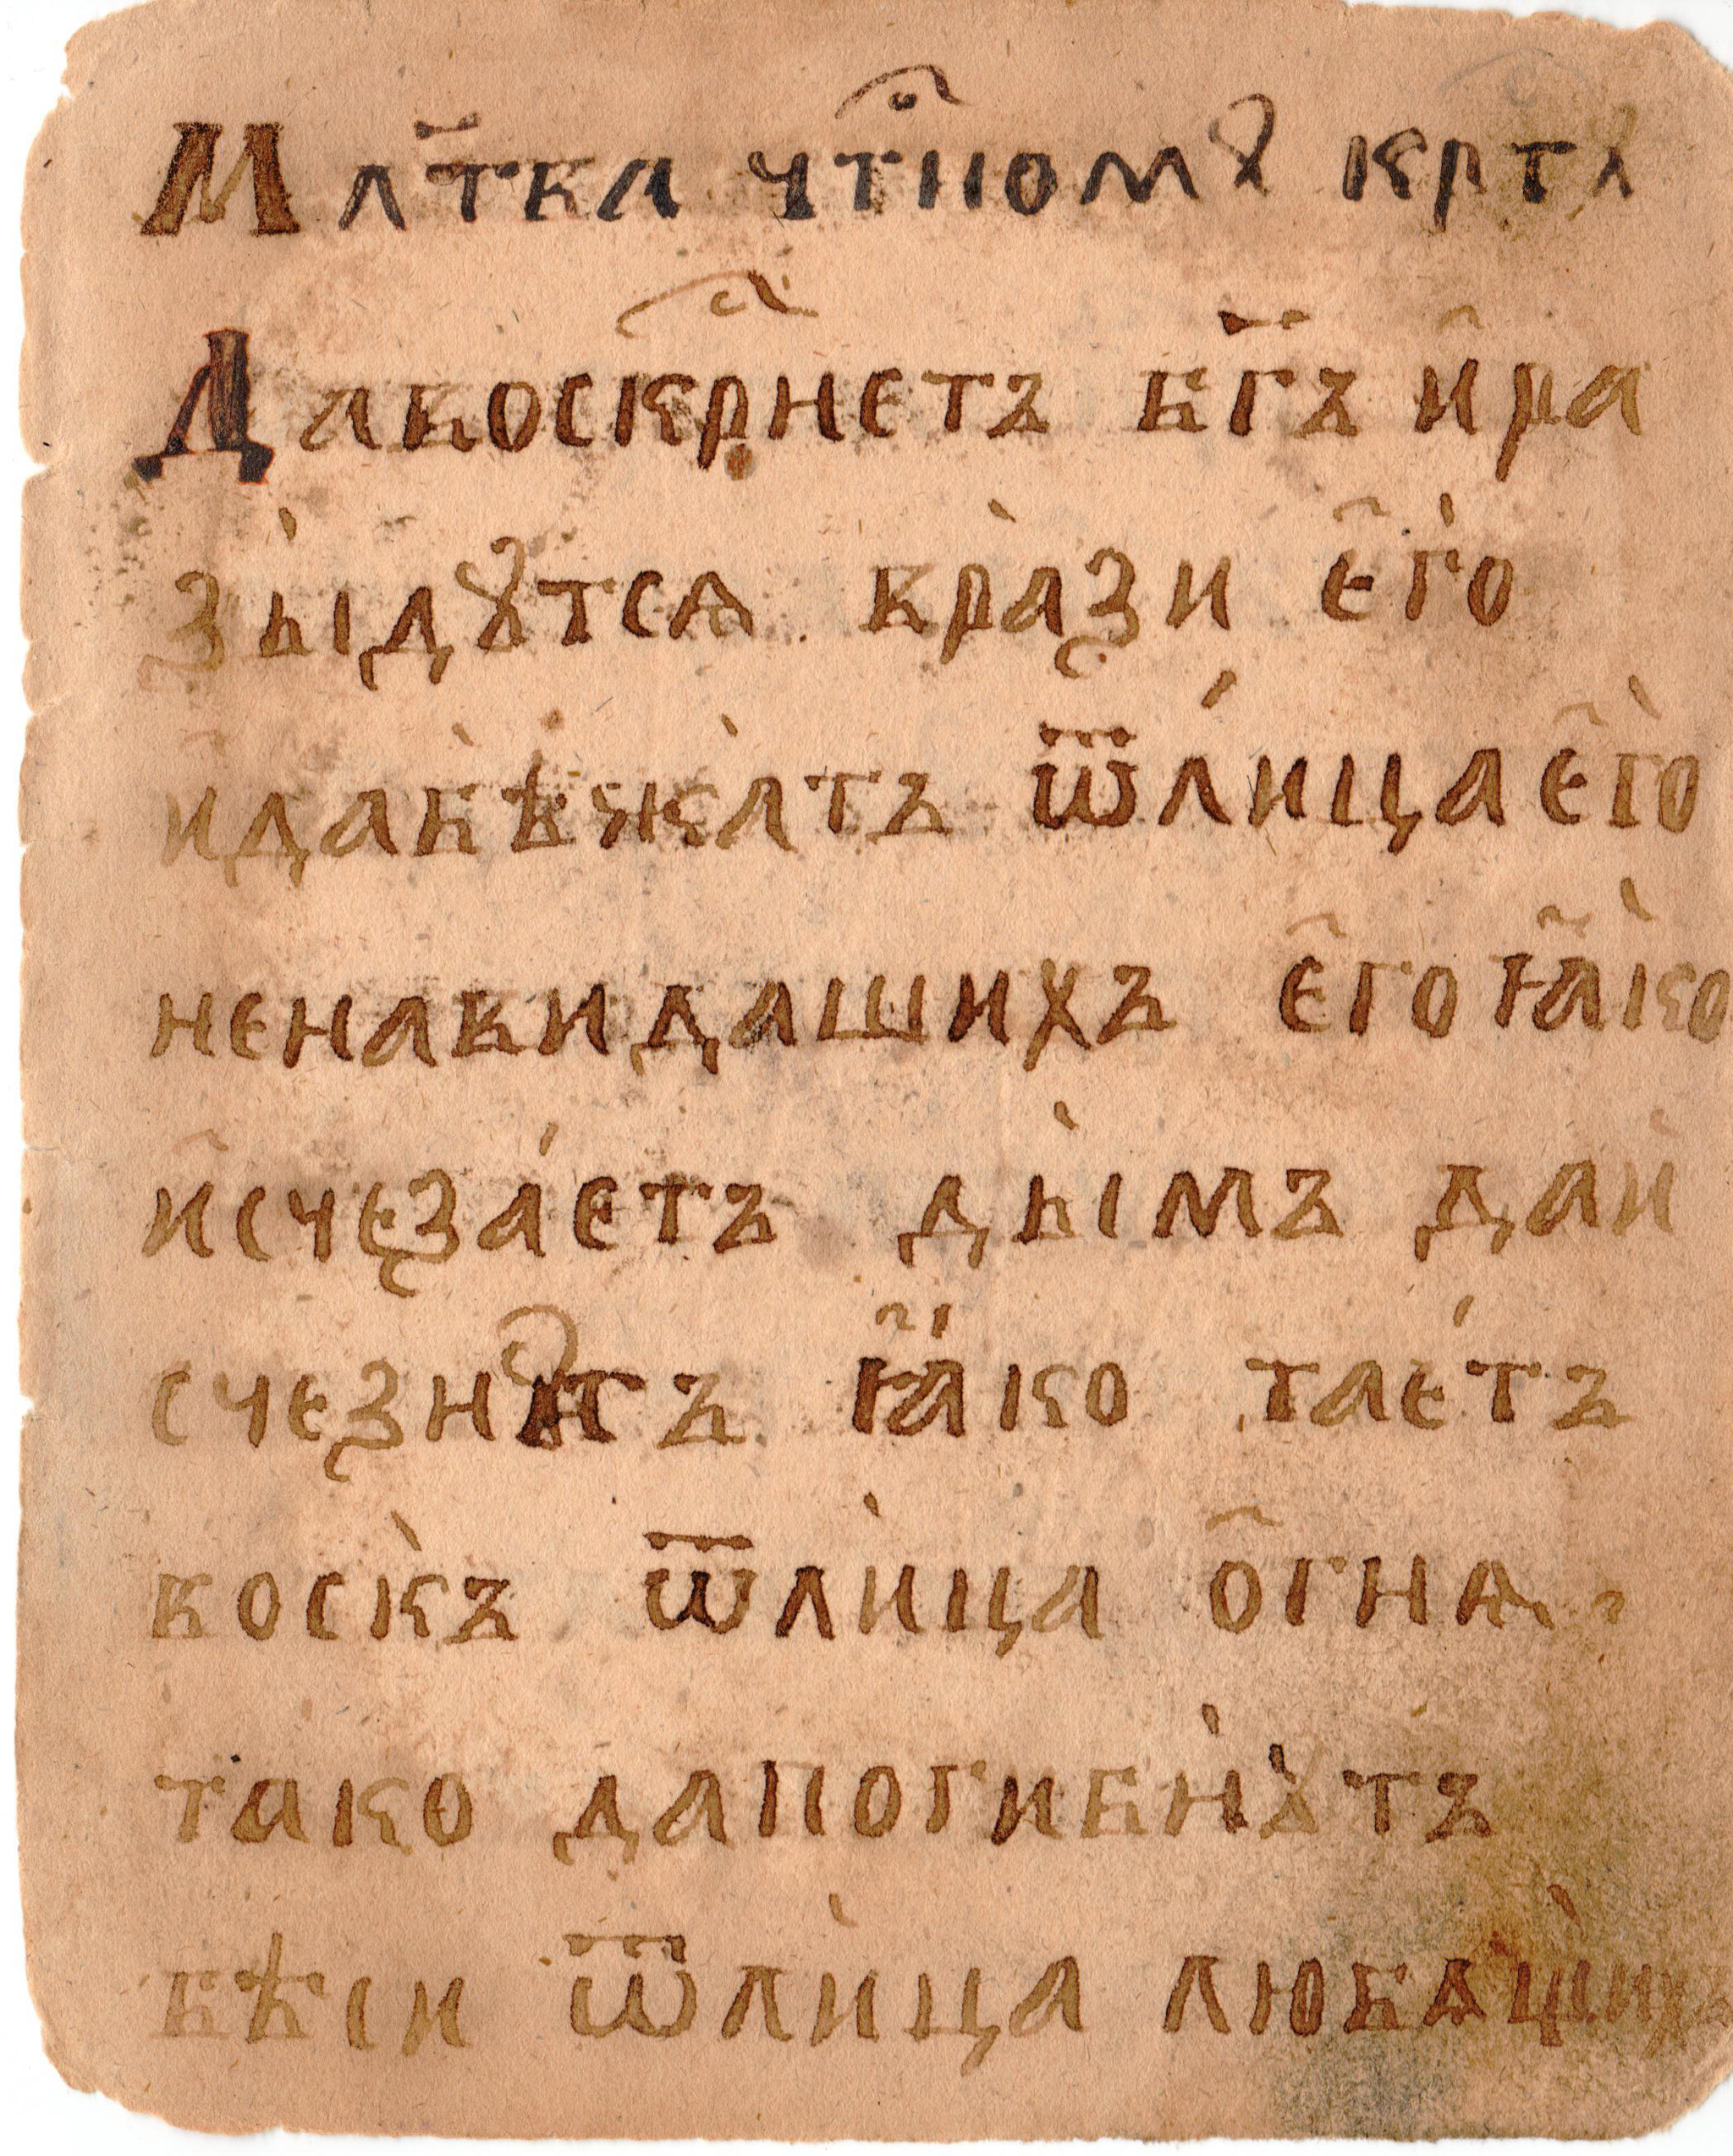 Мл҃тва чⷭ҇тномꙋ крⷭ҇тꙋ
Давоскрⷭ҇нетъ бг҃ъ и҆ра
зы̀дꙋтсѧ врази̏ є҆го̀
идабѣжа́тъ ѿли́цає҆го̀
ненавидащихъ є҆гоꙗ҆́ко
и҆счеза́етъ ды́мъ даи
счезнꙋтъ ꙗ҆́ко тае́тъ
воскъ ѿли́ца о҆гнѧ.
тако дапогибнꙋтъ
бѣси ѿли́ца любѧщихъ